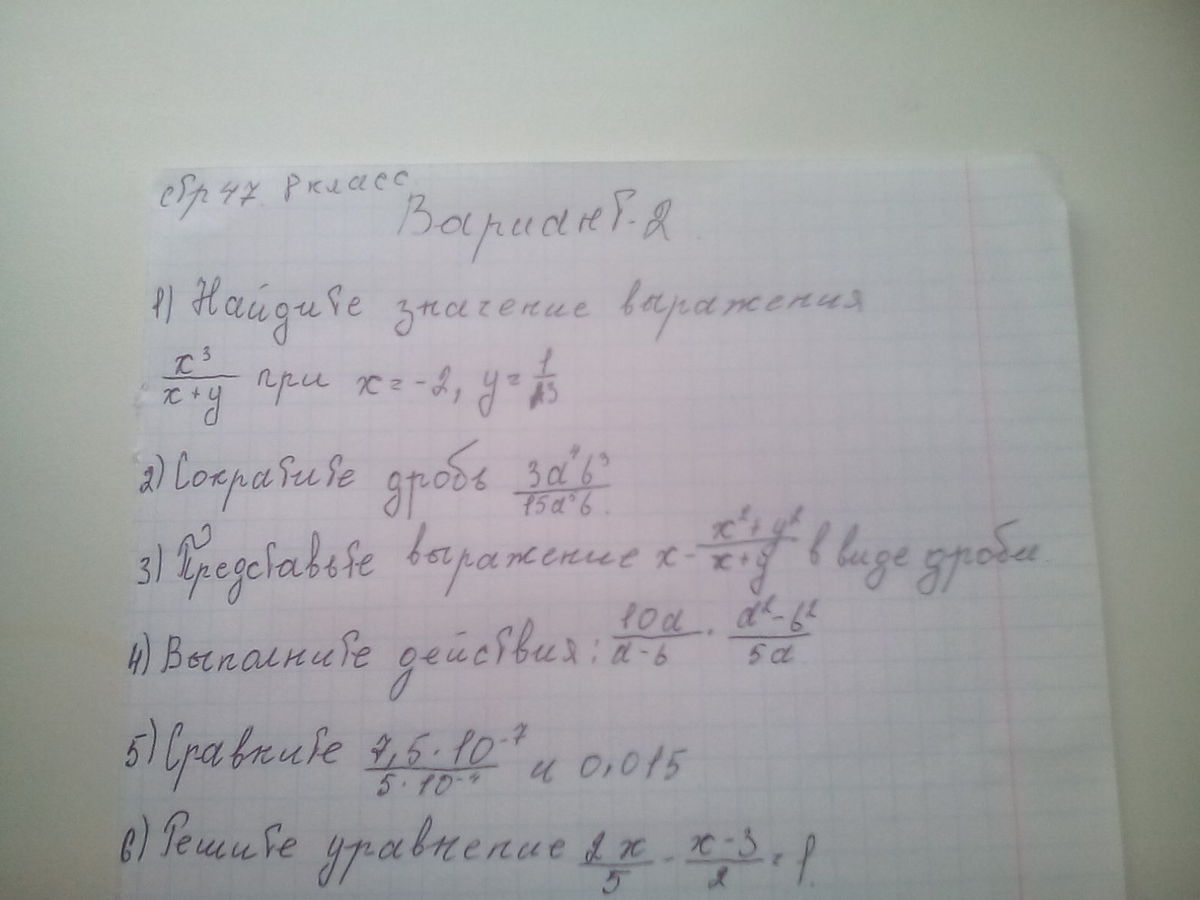 стр 47. 8 класс
Вариант-2
1) Найдите значение выражения
x³/(x+y) при x = -2, y = 1/3
2) Сократите дробь 3a⁴b³/15a³b.
3) Представьте выражение x - (x²+y²)/(x+y) в виде дроби
4) Выполните действия: 10a/(a-b) · (a²-b²)/5a
5) Сравните 7,5·10⁻⁷/5·10⁻⁴ и 0,015
6) Решите уравнение 2x/5 - (x-3)/2 = 1.